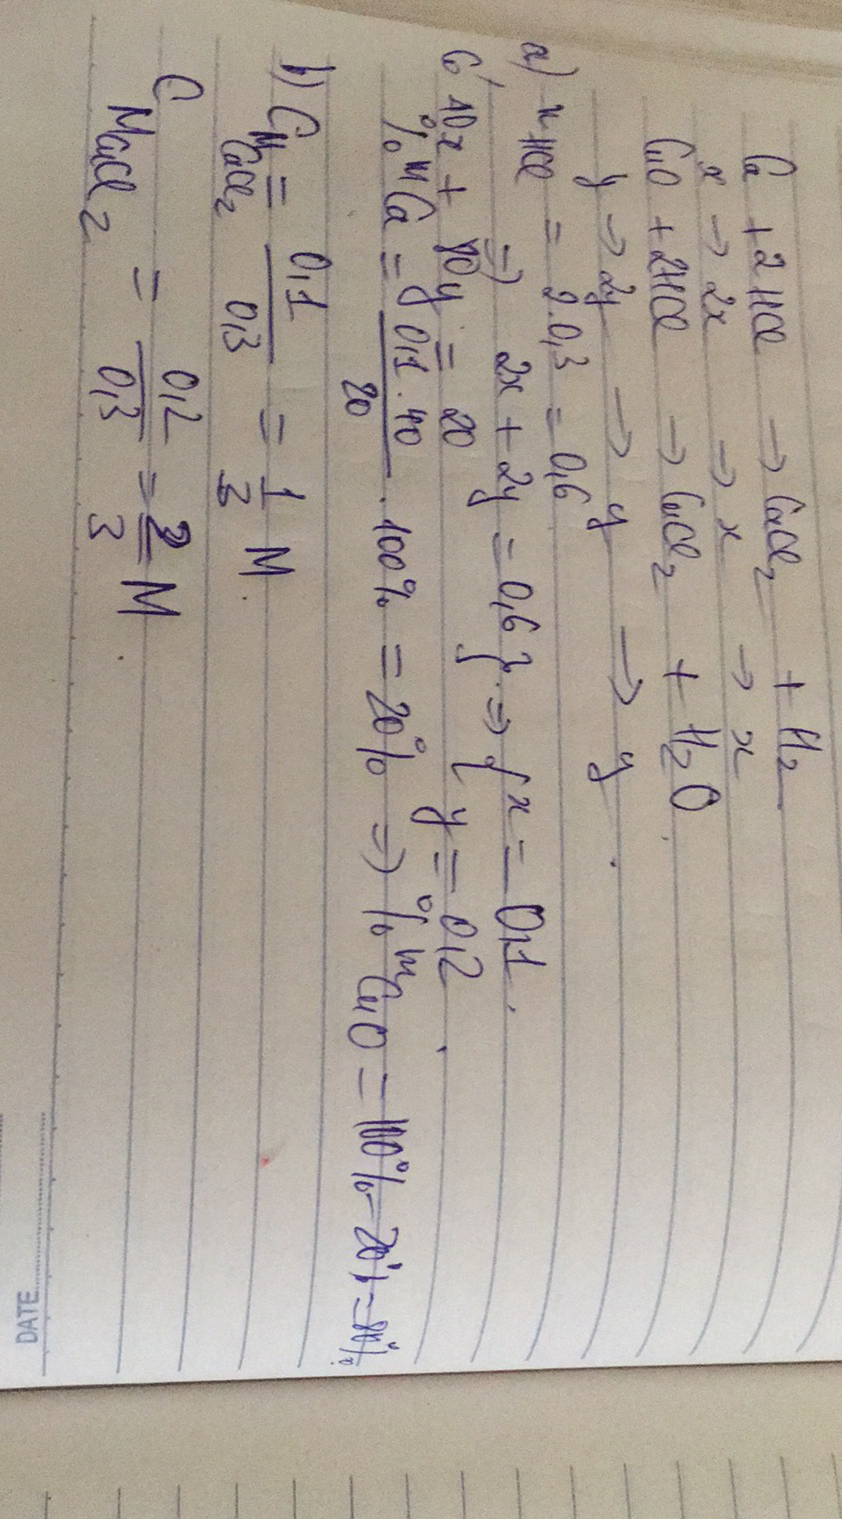 Ca + 2HCl → CaCl₂ + H₂
x → 2x → x → x
CuO + 2HCl → CuCl₂ + H₂O
y → 2y → y → y.
a) nHCl = 2.0,3 = 0,6
⇒ 2x + 2y = 0,6 } ⇒ { x = 0,1.
Có 40x + 80y = 20 { y = 0,2.
%mCa = 0,1.40/20 . 100% = 20% ⇒ %mCuO = 100% - 20% = 80%
b) CM CaCl₂ = 0,1/0,3 = 1/3 M.
CM CuCl₂ = 0,2/0,3 = 2/3 M.
DATE